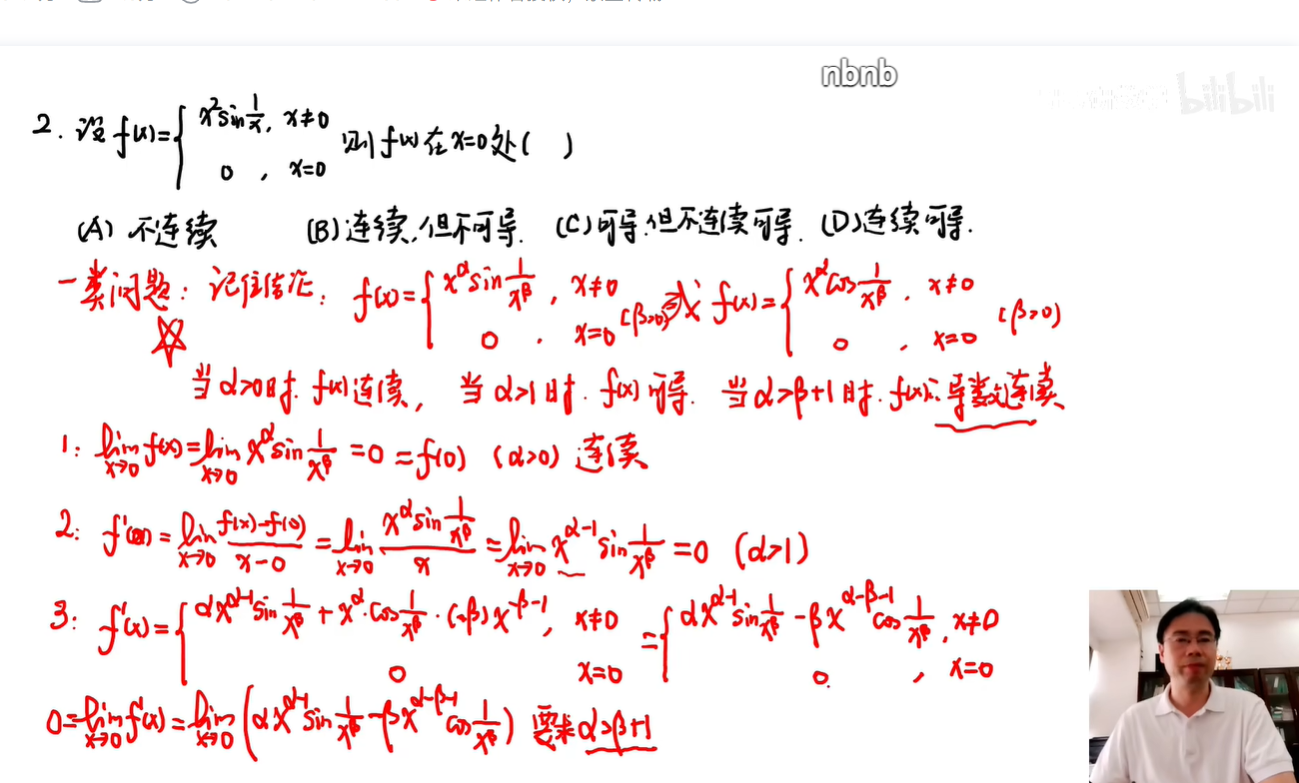 nbnb
bilibili
2. 设 f(x)={ x²sin 1/x, x≠0
0, x=0 则 f(x) 在 x=0 处( )
(A) 不连续 (B) 连续,但不可导. (C) 可导.但不连续可导. (D) 连续可导.
一类问题: 记住结论: f(x)={ x^α sin 1/x^β, x≠0; 0, x=0 (β>0) 或 f(x)={ x^α cos 1/x^β, x≠0; 0, x=0 (β>0)
当 α>0 时. f(x) 连续, 当 α>1 时. f(x) 可导. 当 α>β+1 时. f(x) 导数连续
1: lim x→0 f(x) = lim x→0 x^α sin 1/x^β = 0 = f(0) (α>0) 连续
2: f'(0) = lim x→0 (f(x)-f(0))/(x-0) = lim x→0 (x^α sin 1/x^β)/x = lim x→0 x^(α-1) sin 1/x^β = 0 (α>1)
3: f'(x)={ αx^(α-1) sin 1/x^β + x^α·cos 1/x^β·(-β)x^(-β-1), x≠0; 0 x=0 = { αx^(α-1) sin 1/x^β - βx^(α-β-1) cos 1/x^β, x≠0; 0, x=0
0 = lim x→0 f'(x) = lim x→0 (αx^(α-1) sin 1/x^β - βx^(α-β-1) cos 1/x^β) 要求 α>β+1